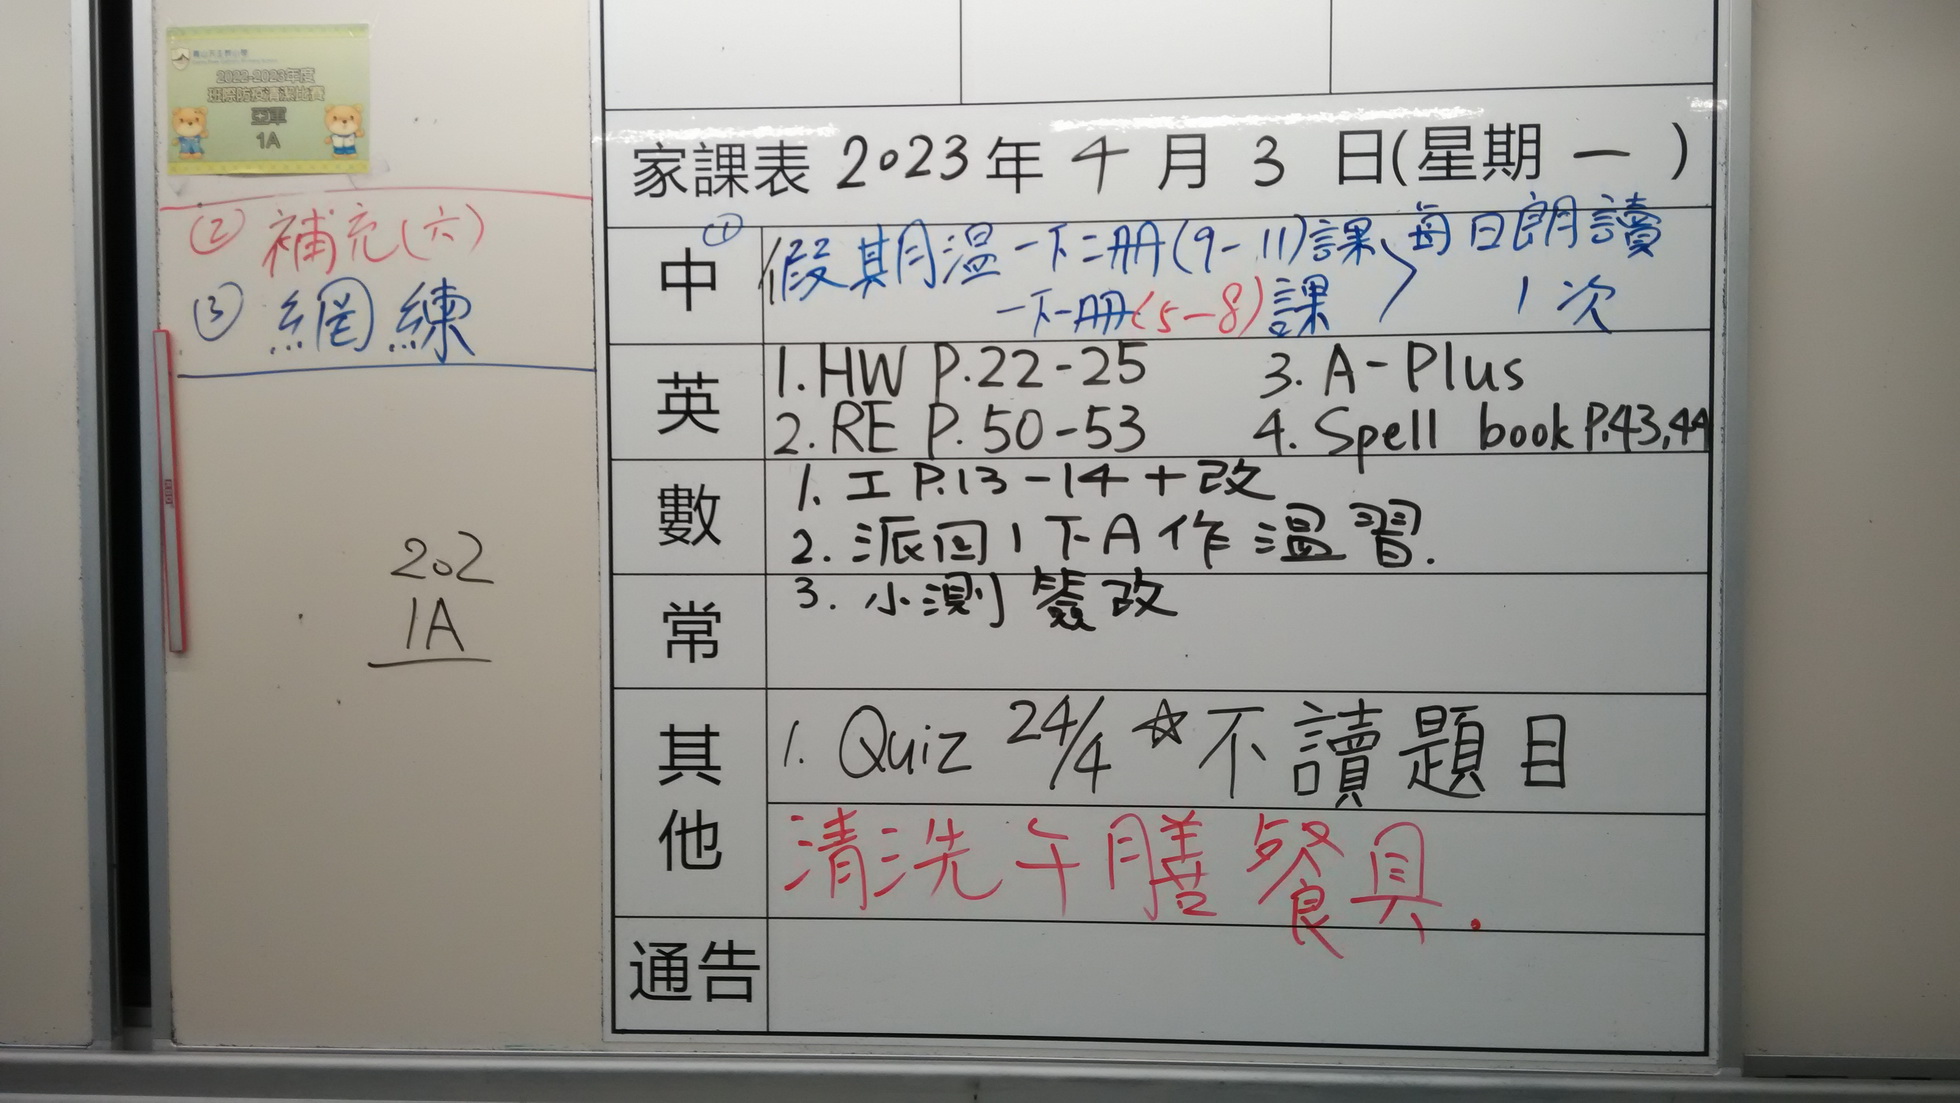 2022-2023年度
班際防疫清潔比賽
亞軍
1A
② 補充(六)
③ 網練
202
1A
家課表 2023 年 4 月 3 日(星期 一 )
中 ① 假期溫一下二冊(9-11)課 每日朗讀
一下一冊(5-8)課 1次
英 1. HW P.22-25 3. A-Plus
2. RE P.50-53 4. Spell book P.43,44
數 1. 工 P.13-14+改
2. 派回1下A作溫習.
常 3. 小測簽改
其他 1. Quiz 24/4 ☆不讀題目
清洗午膳餐具.
通告